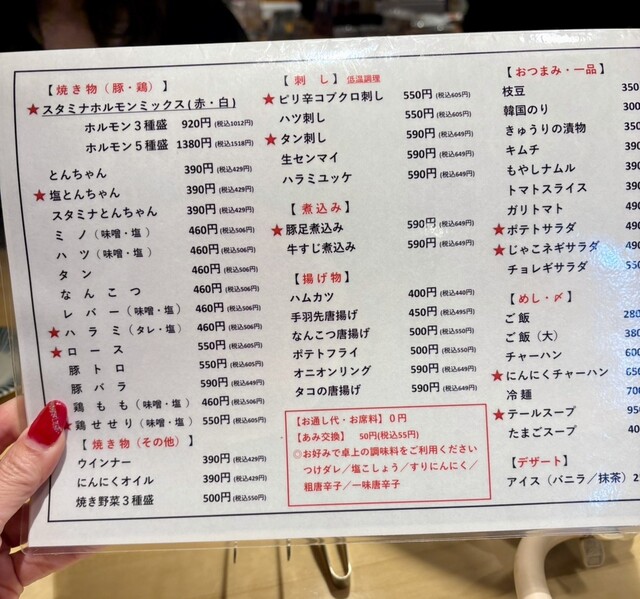 【焼き物（豚・鶏）】
★スタミナホルモンミックス(赤・白)
ホルモン３種盛 920円(税込1012円)
ホルモン５種盛 1380円(税込1518円)
とんちゃん 390円(税込429円)
★塩とんちゃん 390円(税込429円)
スタミナとんちゃん 390円(税込429円)
ミノ（味噌・塩） 460円(税込506円)
ハツ（味噌・塩） 460円(税込506円)
タン 460円(税込506円)
なんこつ 460円(税込506円)
レバー（味噌・塩） 460円(税込506円)
★ハラミ（タレ・塩） 460円(税込506円)
★ロース 550円(税込605円)
豚トロ 550円(税込605円)
豚バラ 590円(税込649円)
鶏もも（味噌・塩） 460円(税込506円)
★鶏せせり（味噌・塩） 550円(税込605円)
【焼き物（その他）】
ウインナー 390円(税込429円)
にんにくオイル 390円(税込429円)
焼き野菜３種盛 500円(税込550円)
【刺し】低温調理
★ピリ辛コブクロ刺し 550円(税込605円)
ハツ刺し 550円(税込605円)
★タン刺し 590円(税込649円)
生センマイ 590円(税込649円)
ハラミユッケ 590円(税込649円)
【煮込み】
★豚足煮込み 590円(税込649円)
牛すじ煮込み 590円(税込649円)
【揚げ物】
ハムカツ 400円(税込440円)
手羽先唐揚げ 450円(税込495円)
なんこつ唐揚げ 500円(税込550円)
ポテトフライ 500円(税込550円)
オニオンリング 590円(税込649円)
タコの唐揚げ 590円(税込649円)
【お通し代・お席料】０円
【あみ交換】 50円(税込55円)
◎お好みで卓上の調味料をご利用ください
つけダレ／塩こしょう／すりにんにく／
粗唐辛子／一味唐辛子
【おつまみ・一品】
枝豆 350
韓国のり 300
きゅうりの漬物 350
キムチ 390
もやしナムル 390
トマトスライス 390
ガリトマト 490
★ポテトサラダ 490
★じゃこネギサラダ 490
チョレギサラダ 550
【めし・〆】
ご飯 280
ご飯（大） 380
チャーハン 600
★にんにくチャーハン 650
冷麺 700
★テールスープ 950
たまごスープ 400
【デザート】
アイス（バニラ／抹茶）